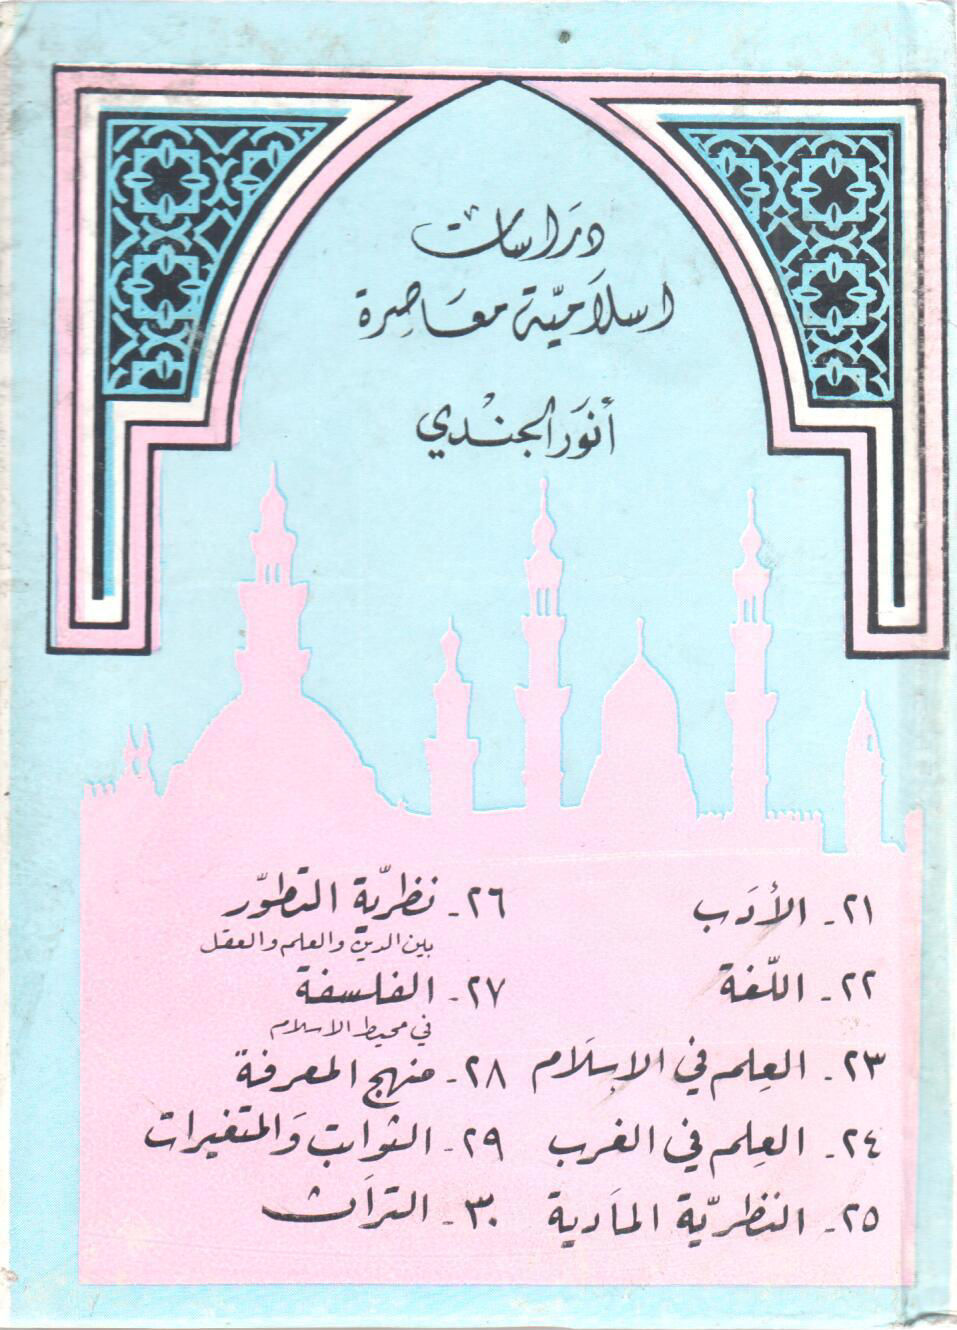 دَرَاسَات
اسلاَميّة معَاصِرة
أنوَر الجنْدي
٢١ - الأدَب
٢٢ - اللّغة
٢٣ - العِلم في الاسِلَام
٢٤ - العِلم في الغرب
٢٥ - النظريّة الماَدية
٢٦ - نظريّة التطوّر
بين الدين والعلم والعقل
٢٧ - الفلسفة
في محيط الاسلام
٢٨ - منهج المعرفة
٢٩ - الثوابت وَالمتغيرات
٣٠ - التراَث